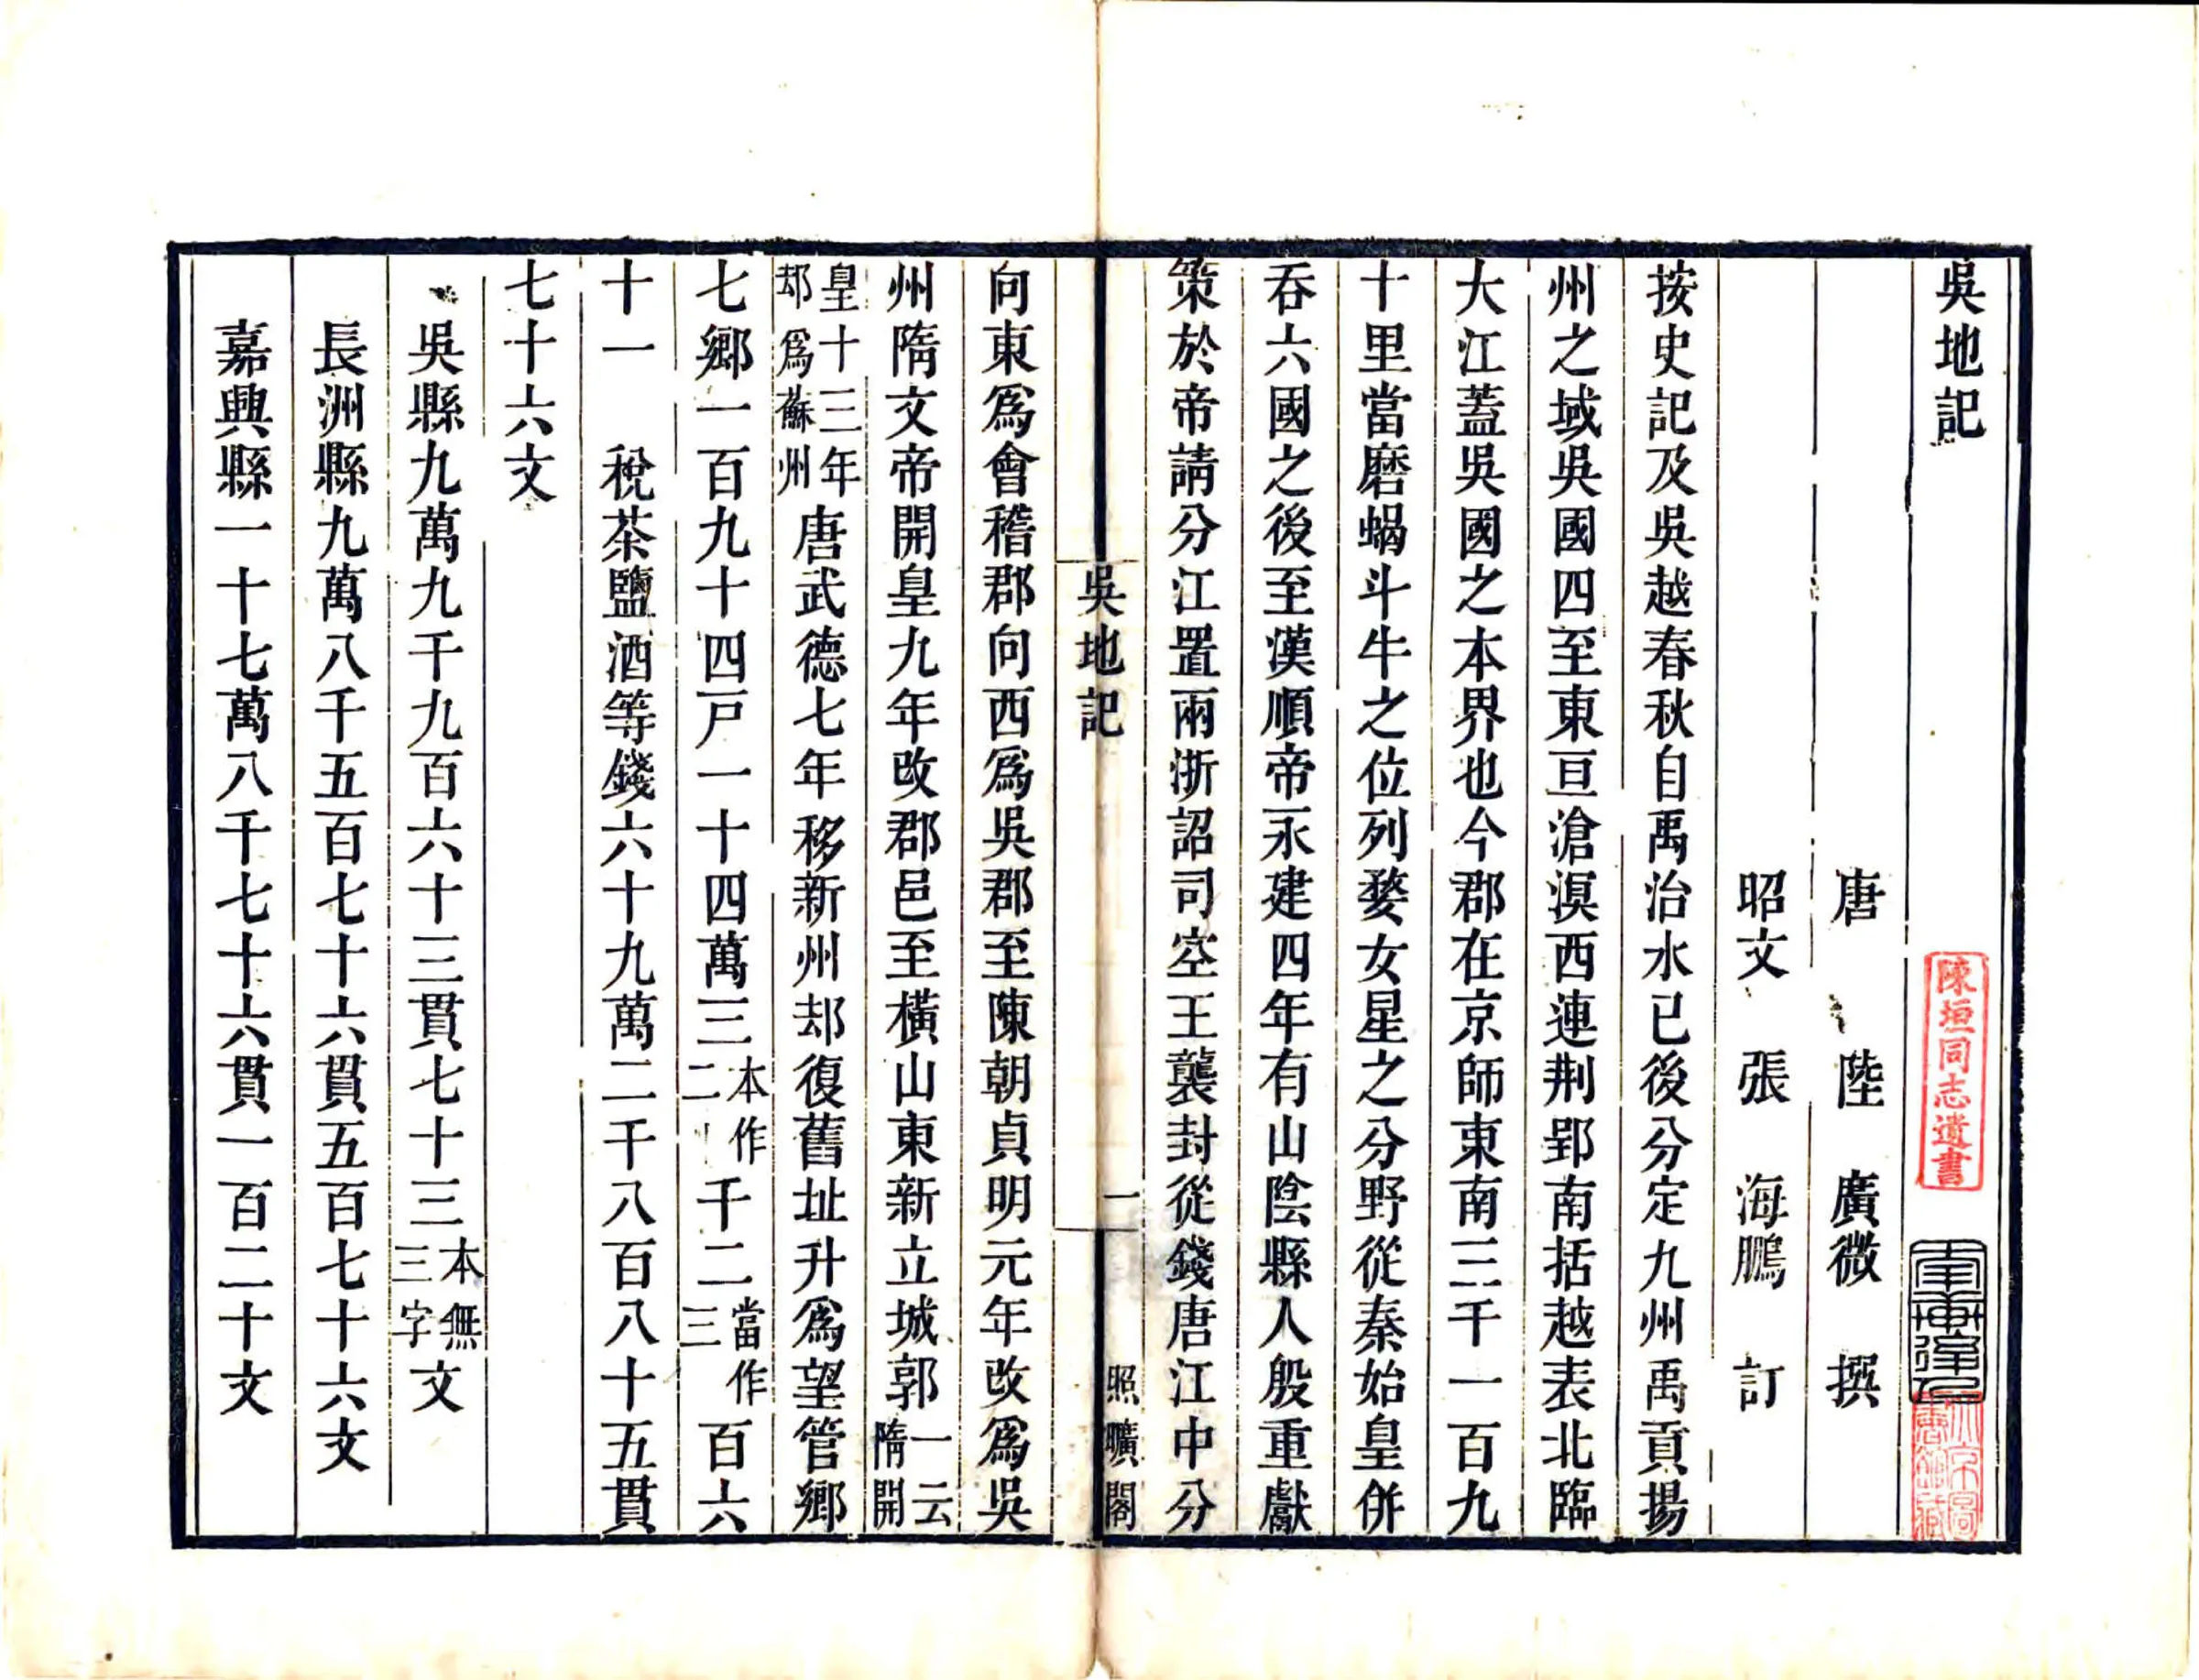 吳地記
唐　陸　廣微　撰
昭文　張　海鵬　訂
按史記及吳越春秋自禹治水已後分定九州禹貢揚
州之域吳國四至東亘滄溟西連荆郢南括越表北臨
大江蓋吳國之本界也今郡在京師東南三千一百九
十里當磨蝎斗牛之位列婺女星之分野從秦始皇併
吞六國之後至漢順帝永建四年有山陰縣人殷重獻
策於帝請分江置兩浙詔司空王襲封從錢唐江中分
吳地記　一　照曠閣
向東爲會稽郡向西爲吳郡至陳朝貞明元年改爲吳
州隋文帝開皇九年改郡邑至橫山東新立城郭一云隋開
皇十三年却爲蘇州唐武德七年移新州却復舊址升爲望管鄉
七鄉一百九十四戸一十四萬三本作二千二當作三百六
十一　稅茶鹽酒等錢六十九萬二千八百八十五貫
七十六文
吳縣九萬九千九百六十三貫七十三本無三字文
長洲縣九萬八千五百七十六貫五百七十六文
嘉興縣一十七萬八千七十六貫一百二十文
陳垣同志遺書